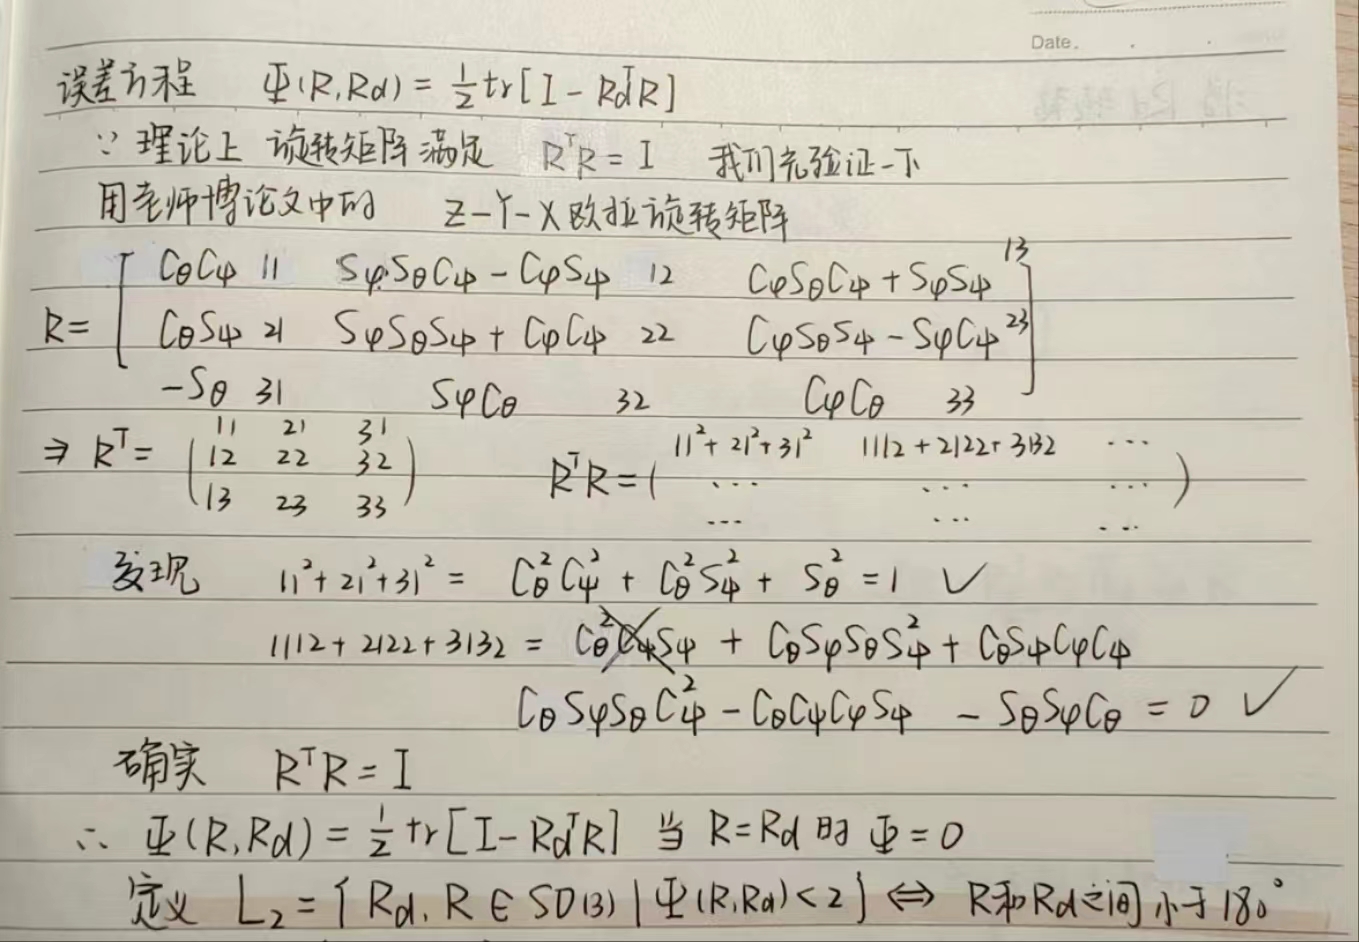 Date.
误差方程 Ψ(R,Rd) = 1/2 tr[I - RdᵀR]
∵ 理论上 旋转矩阵满足 RᵀR = I 我们先验证一下
用老师博论文中的 Z-Y-X欧拉旋转矩阵
13
CθCψ 11 SφSθCψ - CφSψ 12 CφSθCψ + SφSψ
R = [ CθSψ 21 SφSθSψ + CφCψ 22 CφSθSψ - SφCψ 23 ]
-Sθ 31 SφCθ 32 CφCθ 33
11 21 31
⇒ Rᵀ = ( 12 22 32 )
13 23 33
11²+21²+31² 1112+2122+3132 ...
RᵀR = ( ... ... ... )
... ... ...
发现 11²+21²+31² = Cθ²Cψ² + Cθ²Sψ² + Sθ² = 1 ✓
1112+2122+3132 = Cθ²CψSψ + CθSφSθSψ² + CθSψCφCψ
CθSφSθCψ² - CθCψCφSψ - SθSφCθ = 0 ✓
确实 RᵀR = I
∴ Ψ(R,Rd) = 1/2 tr[I - RdᵀR] 当 R=Rd 时 Ψ=0
定义 L₂ = { Rd, R ∈ SO(3) | Ψ(R,Rd) < 2 } ⇔ R和Rd之间小于180°